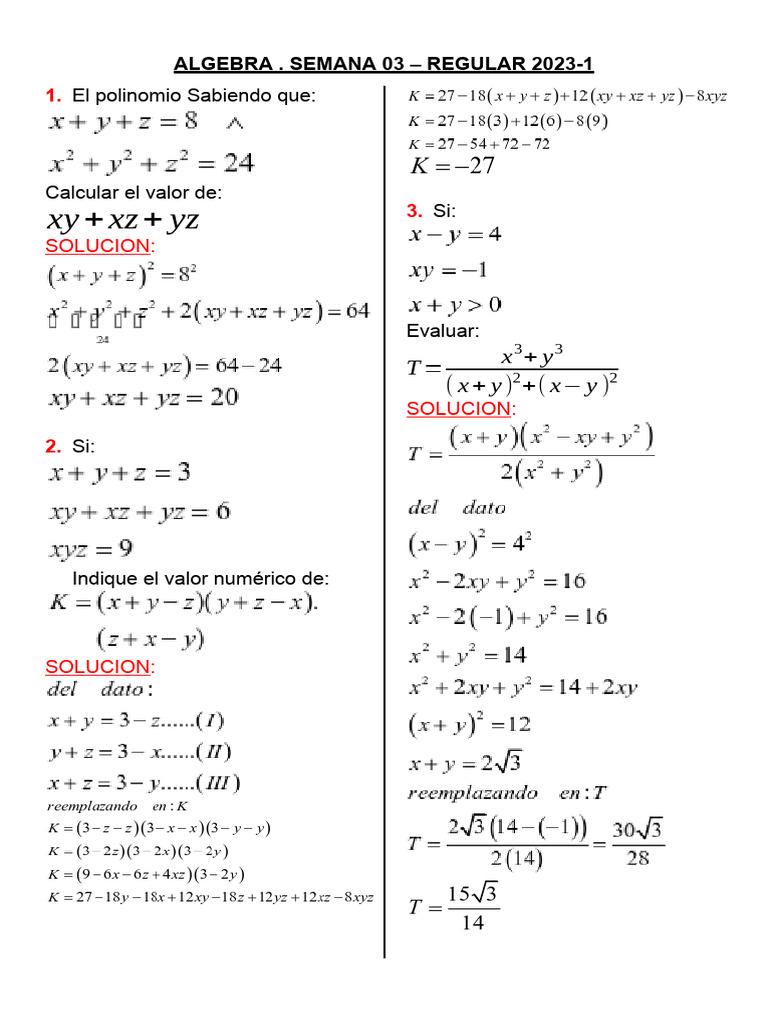 ALGEBRA . SEMANA 03 – REGULAR 2023-1
1. El polinomio Sabiendo que:
x + y + z = 8 ∧
x² + y² + z² = 24
Calcular el valor de:
xy + xz + yz
SOLUCION:
(x + y + z)² = 8²
x² + y² + z² + 2(xy + xz + yz) = 64
24
2(xy + xz + yz) = 64 − 24
xy + xz + yz = 20
2. Si:
x + y + z = 3
xy + xz + yz = 6
xyz = 9
Indique el valor numérico de:
K = (x + y − z)(y + z − x).
(z + x − y)
SOLUCION:
del dato :
x + y = 3 − z......(I)
y + z = 3 − x......(II)
x + z = 3 − y......(III)
reemplazando en : K
K = (3 − z − z)(3 − x − x)(3 − y − y)
K = (3 − 2z)(3 − 2x)(3 − 2y)
K = (9 − 6x − 6z + 4xz)(3 − 2y)
K = 27 − 18y − 18x + 12xy − 18z + 12yz + 12xz − 8xyz
K = 27 − 18(x + y + z) + 12(xy + xz + yz) − 8xyz
K = 27 − 18(3) + 12(6) − 8(9)
K = 27 − 54 + 72 − 72
K = −27
3. Si:
x − y = 4
xy = −1
x + y > 0
Evaluar:
T = (x³ + y³) / ((x + y)² + (x − y)²)
SOLUCION:
T = (x + y)(x² − xy + y²) / 2(x² + y²)
del dato
(x − y)² = 4²
x² − 2xy + y² = 16
x² − 2(−1) + y² = 16
x² + y² = 14
x² + 2xy + y² = 14 + 2xy
(x + y)² = 12
x + y = 2√3
reemplazando en : T
T = 2√3(14 − (−1)) / 2(14) = 30√3 / 28
T = 15√3 / 14